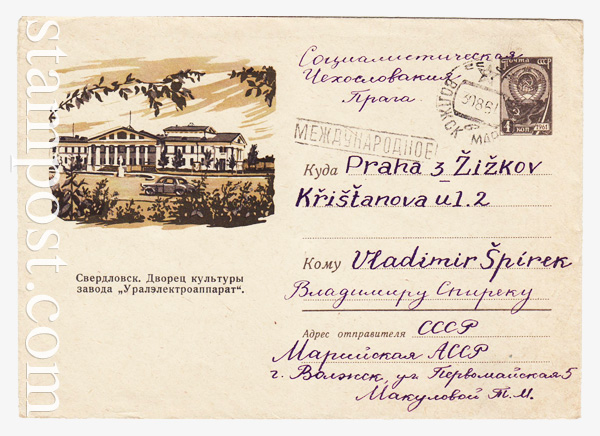 Социалистическая
Чехословакия
Прага
ПОЧТА СССР
4 КОП 1961
ВОЛЖСК
МЕЖДУНАРОДНОЕ
Куда Praha 3 Žižkov
Křišťanova ul. 2
Кому Vladimir Špírek
Владимиру Спиреку
Адрес отправителя СССР
Марийская АССР
г. Волжск, ул. Первомайская 5
Макуловой Т. М.
Свердловск. Дворец культуры
завода „Уралэлектроаппарат“.
stampost.com